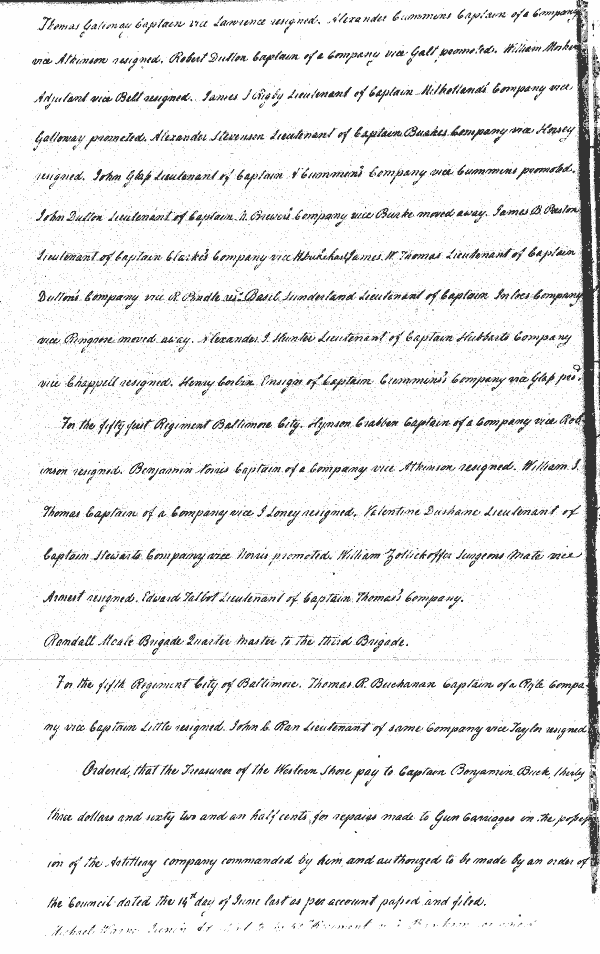 Thomas Galloway Captain vice Lawrence resigned. Alexander Cummens Captain of a Company
vice Atkinson resigned. Robert Dutton Captain of a Company vice Galt promoted. William Mosher
Adjutant vice Belt resigned. James J Rigby Lieutenant of Captain Milholland's Company vice
Galloway promoted. Alexander Stevenson Lieutenant of Captain Buakes Company vice Horsey
resigned. John Glass Lieutenant of Captain A Cummens Company vice Cummens promoted.
John Dutton Lieutenant of Captain N. Brewers Company vice Burke moved away. James B. Preston
Lieutenant of Captain Clarke's Company vice James W. Thomas Lieutenant of Captain
Dutton's Company vice R. Pindle res.d Basil Sunderland Lieutenant of Captain Inloes Company
vice Ringrose moved away. Alexander J. Hunter Lieutenant of Captain Hubbarts Company
vice Chappell resigned. Henry Corbin Ensign of Captain Cummens's Company vice Glass pro.d
For the fifty first Regiment Baltimore City. Hynson Crabben Captain of a Company vice Rob-
inson resigned. Benjamin Norris Captain of a Company vice Atkinson resigned. William I.
Thomas Captain of a Company vice J Loney resigned. Valentine Dushane Lieutenant of
Captain Stewarts Company vice Norris promoted. William Zollickoffer Surgeons Mate vice
Armest resigned. Edward Talbot Lieutenant of Captain Thomas's Company.
Randall Moale Brigade Quarter Master to the third Brigade.
For the fifth Regiment City of Baltimore. Thomas R. Buchanan Captain of a Rifle Compa-
ny vice Captain Little resigned. John C. Rau Lieutenant of same Company vice Taylor resigned
Ordered, that the Treasurer of the Western Shore pay to Captain Benjamin Buck, thirty
three dollars and sixty two and an half cents, for repairs made to Gun Carriages in the possess
ion of the Artillery company commanded by him and authorized to be made by an order of
the Council dated the 14th day of June last as per account passed and filed.
Michael